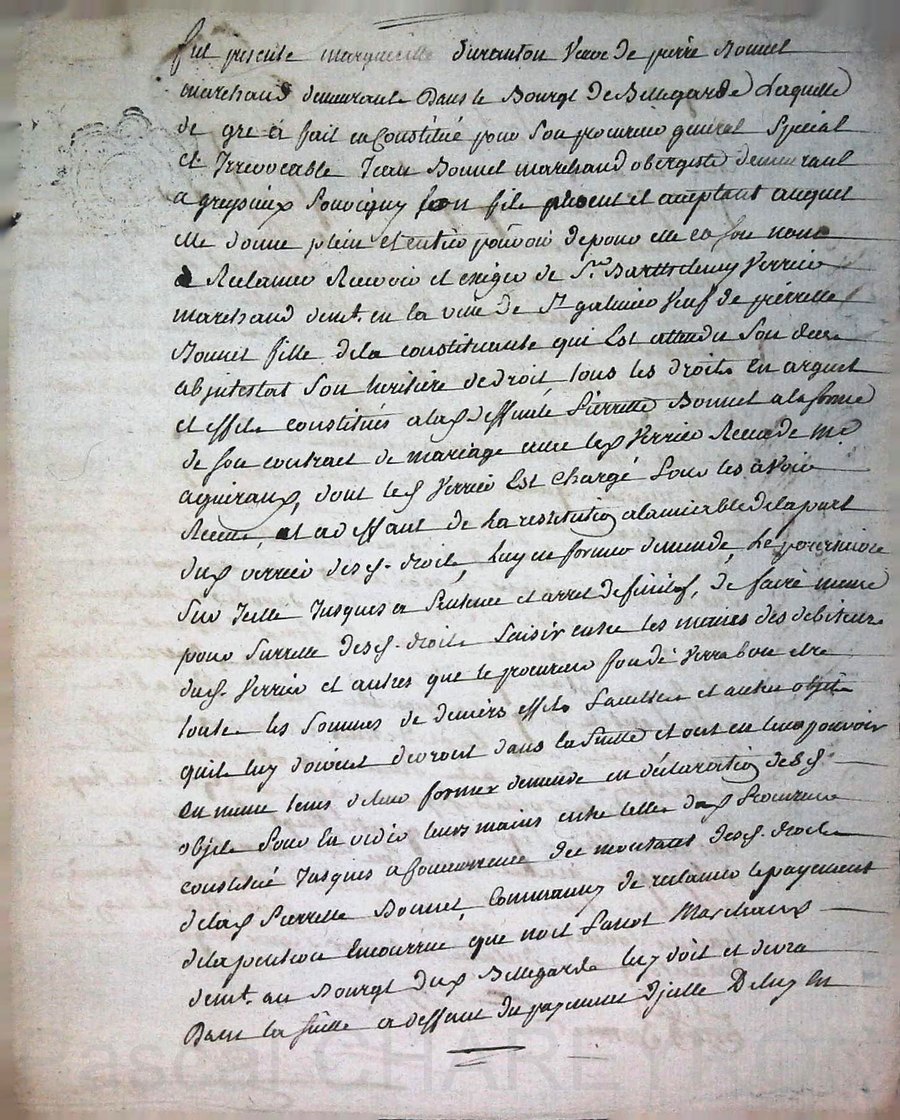 fut presente marguerite duranton veuve de pierre Bonnet
marchand demeurante Dans le Bourgt de Bellegarde Laquelle
de gre a fait en Constitué pour Son procureur general Special
et Irrevocable Jean Bonnet marchand obergiste demeurant
a Souvigny son fils present et aceptant auquel
elle donne plein et entier pouvoir de pour elle en son nom
Reclamer Recevoir et exiger de Sr. Barthelemy Verrier
marchand demt. en la ville de St galmier veuf de pierrette
Bonnet fille dela constituante qui Est attendu Son deces
abintestat Son heritiere de droit tous les droits en argent
et effets constitués a lad. deffunte Pierrette Bonnet a la forme
de son contrat de mariage avec led. Verrier Recu de me.
aguiraud, dont led. Verrier Est chargé Sous les avoir
Recue, et a deffaut de la restitution alamiable dela part
dud. verrier desd. droits, luy en former demande, Le poursuivre
Sur Icelle Jusques a Sentence et arret definitif, de faire meme
pour Surette desd. droits Saisir entre les mains des debiteurs
dud. Verrier et autres que le procureur fondé verra bon etre
toutes les Sommes de deniers effets et autres objets
quils luy doivent devront dans la Suitte et ont en leur pouvoir
en meme tems deleur former demande en declaration desd.
objets pour la vider leurs mains entre celles dud. Procureur
constitué Jusques a Concurrence des montants desd. droits
delad. Pierrette Bonnet, Comme aussy de reclamer le payement
dela pention que Marchand
demt. au Bourgt dud. Bellegarde luy doit et devra
Dans la suitte a deffaut du payement d'icelle De luy en
Pascal CHAREYRON